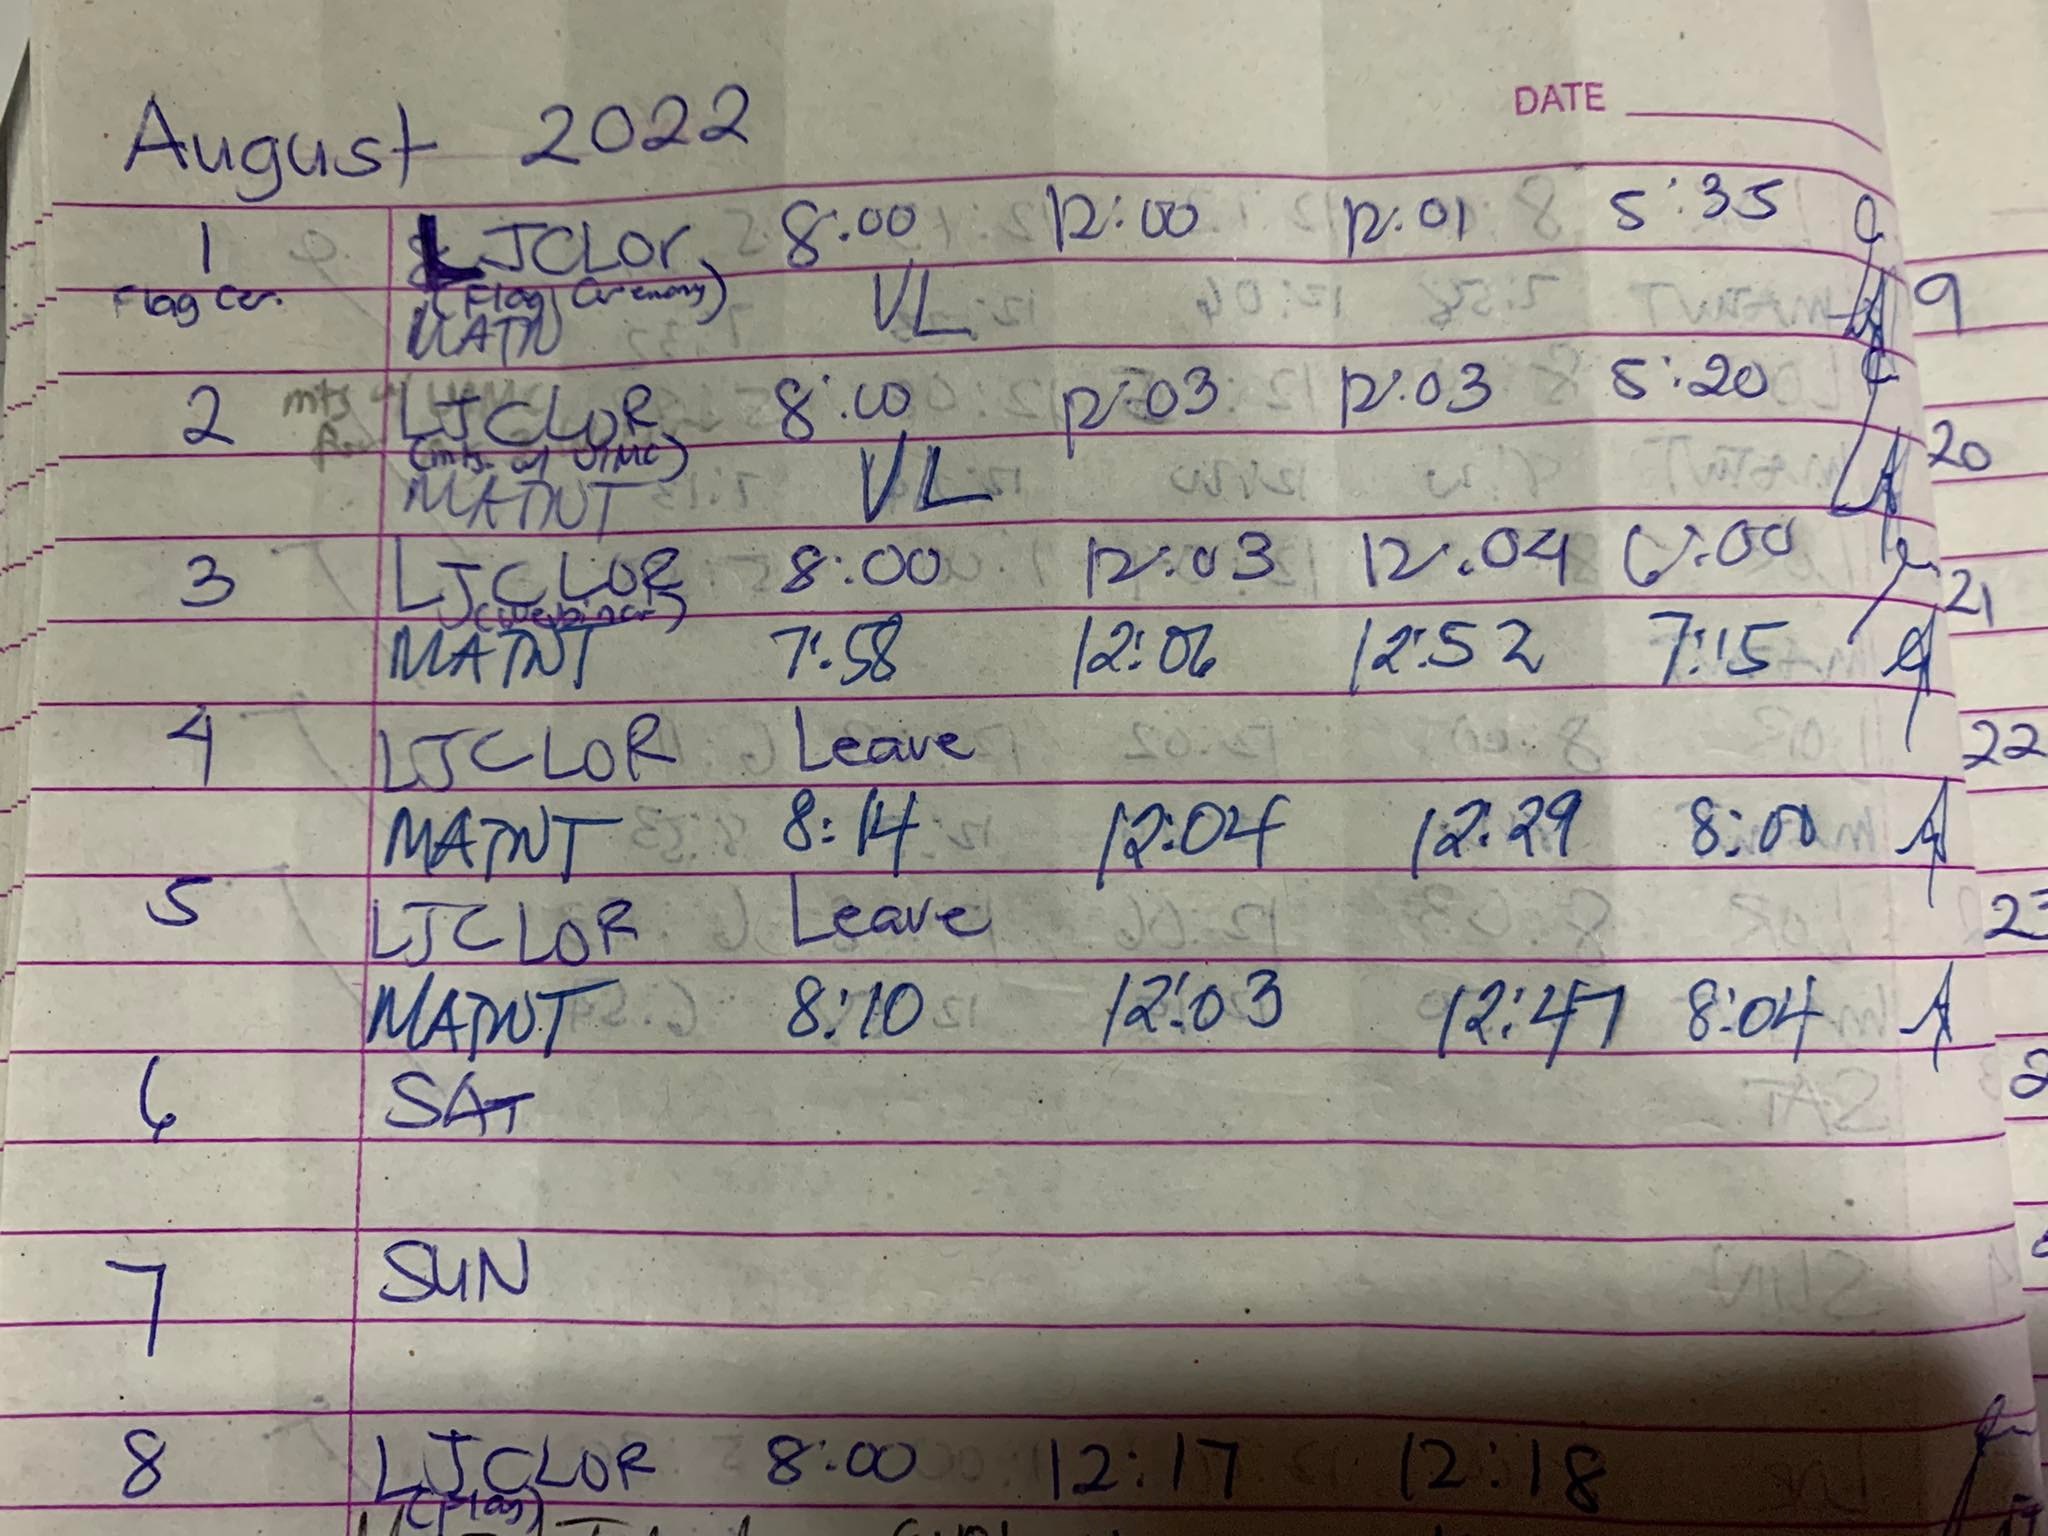 DATE
August 2022
1 LJCLor 8:00 12:00 12:01 5:35
Flag Cer. (Flag Ceremony)
MATN VL 9
2 LJCLOR 8:00 12:03 12:03 5:20
(mts. w/ 20
MATNT VL
3 LJCLOR 8:00 12:03 12:04 6:00
(Webinar) 21
MATNT 7:58 12:06 12:52 7:15
4 LJCLOR Leave 22
MATNT 8:14 12:04 12:29 8:00
5 LJCLOR Leave 23
MATNT 8:10 12:03 12:47 8:04
6 SAT 2
7 SUN
8 LJCLOR 8:00 12:17 12:18
(Flag)